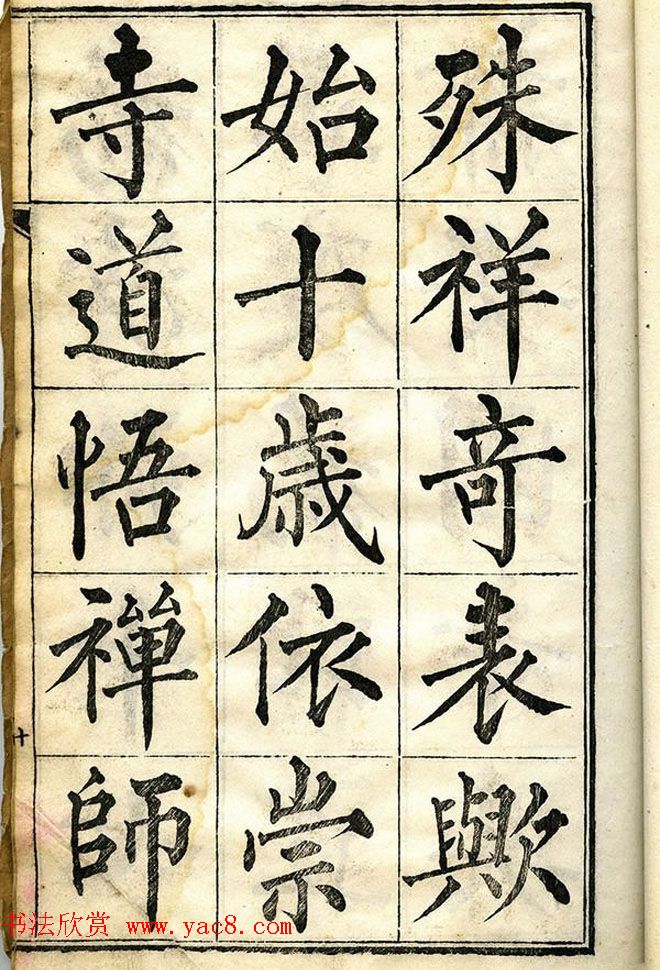 殊祥竒表歟
始十歳依崇
寺道悟禪師
十
书法欣赏 www.yac8.com